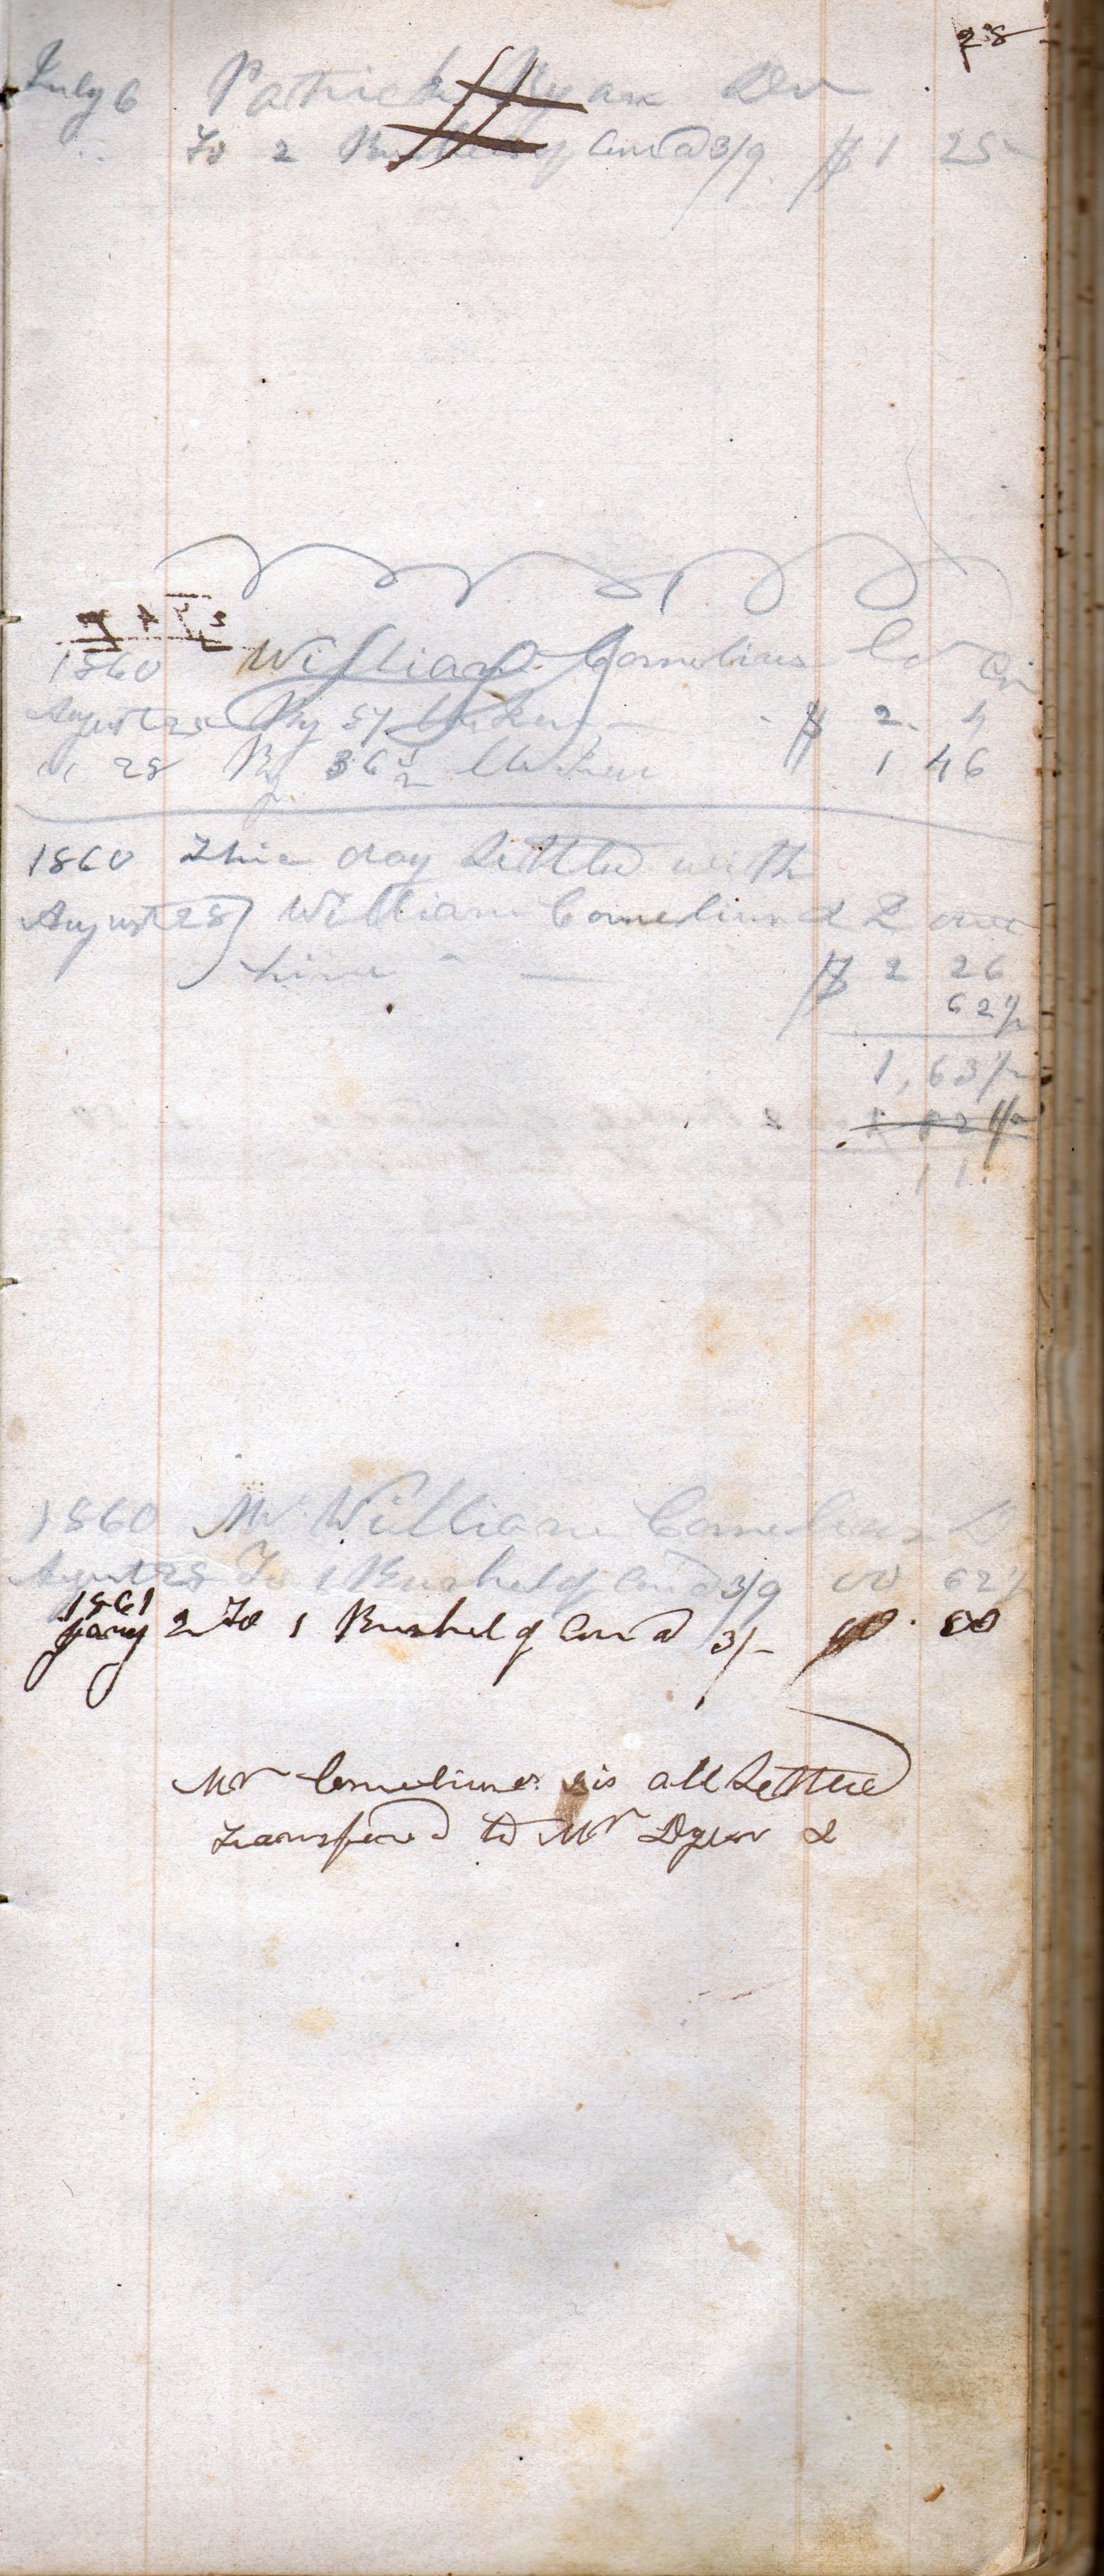 28
July 6 Patrick Ryan Dr
To 2 Bushels of Corn @ 3/9 $ 1 25
1860 William Cornelius Cr
August 25 By 51 $ 2. 4
" 28 By 36 1/2 1 46
1860 This day Settled with
August 28 William Cornelius & I owe
him $ 2 26
62 1/2
1,63 1/2
11
1860 Mr William Cornelius D
August 28 To 1 Bushel of Corn @ 3/9 00 62 1/2
1861
Jany 2 To 1 Bushel of Corn @ 3/- 50
Mr Cornelius is all Settled
transfered to Mr Dyer &